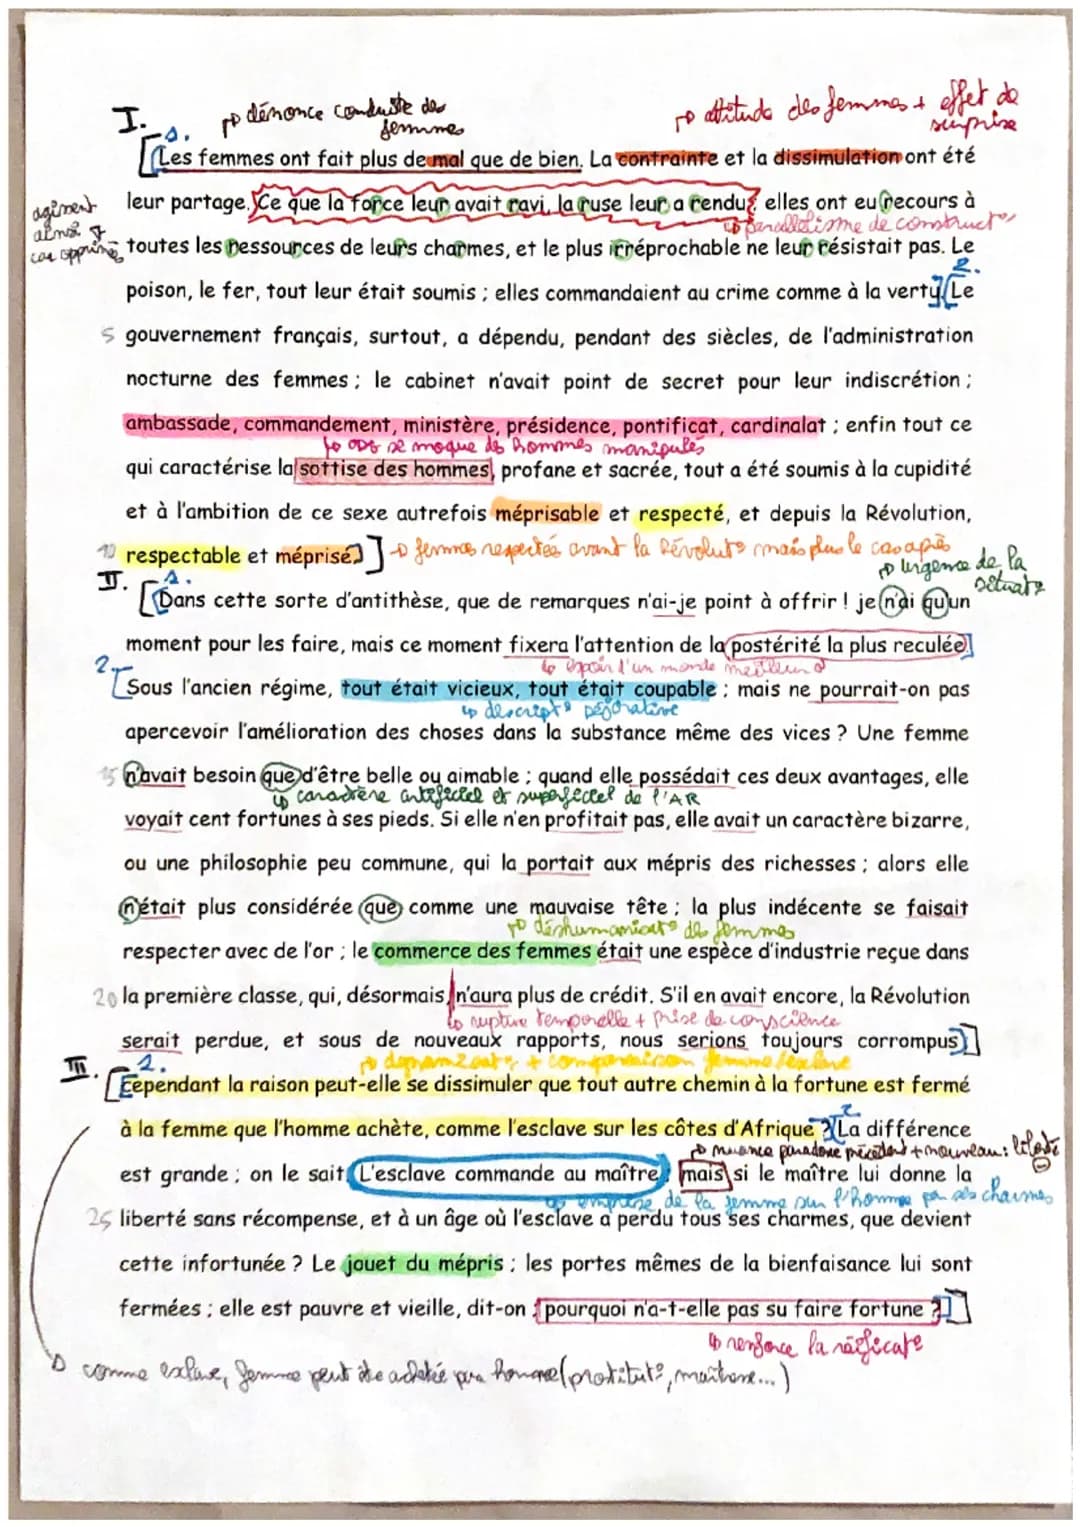 I.
↳ dénonce conduite des femmes
↳ attitude des femmes + effet de surprise
1.
[Les femmes ont fait plus de mal que de bien. La contrainte et la dissimulation ont été
leur partage. Ce que la force leur avait ravi, la ruse leur a rendu ; elles ont eu recours à
agissent ainsi car opprimées
↳ parallélisme de construct°
toutes les ressources de leurs charmes, et le plus irréprochable ne leur résistait pas. Le
2.
poison, le fer, tout leur était soumis ; elles commandaient au crime comme à la vertu.] [Le
5 gouvernement français, surtout, a dépendu, pendant des siècles, de l'administration
nocturne des femmes ; le cabinet n'avait point de secret pour leur indiscrétion ;
ambassade, commandement, ministère, présidence, pontificat, cardinalat ; enfin tout ce
↳ ODG se moque des hommes manipulés
qui caractérise la sottise des hommes, profane et sacrée, tout a été soumis à la cupidité
et à l'ambition de ce sexe autrefois méprisable et respecté, et depuis la Révolution,
10 respectable et méprisé.] → femmes respectées avant la Révolut° mais plus le cas après
↳ urgence de la situat°
II. 1.
[Dans cette sorte d'antithèse, que de remarques n'ai-je point à offrir ! je n'ai qu'un
moment pour les faire, mais ce moment fixera l'attention de la postérité la plus reculée.]
↳ espoir d'un monde meilleur
2.
[Sous l'ancien régime, tout était vicieux, tout était coupable ; mais ne pourrait-on pas
↳ descript° péjorative
apercevoir l'amélioration des choses dans la substance même des vices ? Une femme
15 n'avait besoin que d'être belle ou aimable ; quand elle possédait ces deux avantages, elle
↳ caractère artificiel et superficiel de l'AR
voyait cent fortunes à ses pieds. Si elle n'en profitait pas, elle avait un caractère bizarre,
ou une philosophie peu commune, qui la portait aux mépris des richesses ; alors elle
n'était plus considérée que comme une mauvaise tête ; la plus indécente se faisait
↳ déshumanisat° des femmes
respecter avec de l'or ; le commerce des femmes était une espèce d'industrie reçue dans
20 la première classe, qui, désormais, n'aura plus de crédit. S'il en avait encore, la Révolution
↳ rupture temporelle + prise de conscience
serait perdue, et sous de nouveaux rapports, nous serions toujours corrompus]]
+ comparaison femme/esclave
III. 1.
[Cependant la raison peut-elle se dissimuler que tout autre chemin à la fortune est fermé
2.
à la femme que l'homme achète, comme l'esclave sur les côtes d'Afrique ?] [La différence
↳ nuance paradoxe précédent + nouveau : liberté
est grande ; on le sait. L'esclave commande au maître ; mais si le maître lui donne la
↳ emprise de la femme sur l'homme par ses charmes
25 liberté sans récompense, et à un âge où l'esclave a perdu tous ses charmes, que devient
cette infortunée ? Le jouet du mépris ; les portes mêmes de la bienfaisance lui sont
fermées ; elle est pauvre et vieille, dit-on ; pourquoi n'a-t-elle pas su faire fortune ?]]
↳ renforce la réificat°
→ comme esclave, femme peut être achetée par homme (prostitut°, maîtresse...)